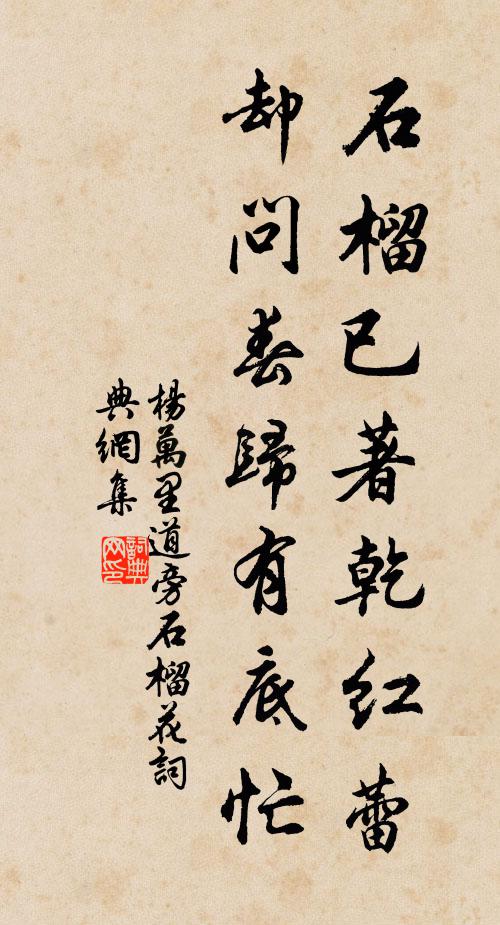 石榴已著乾紅蕾
却問春歸有底忙
楊萬里道旁石榴花詞
典網集
詞典网印